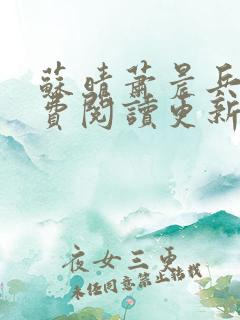 蘇晴蕭晨兵
費閱讀更新
夜女三更
未經同意禁止轉載